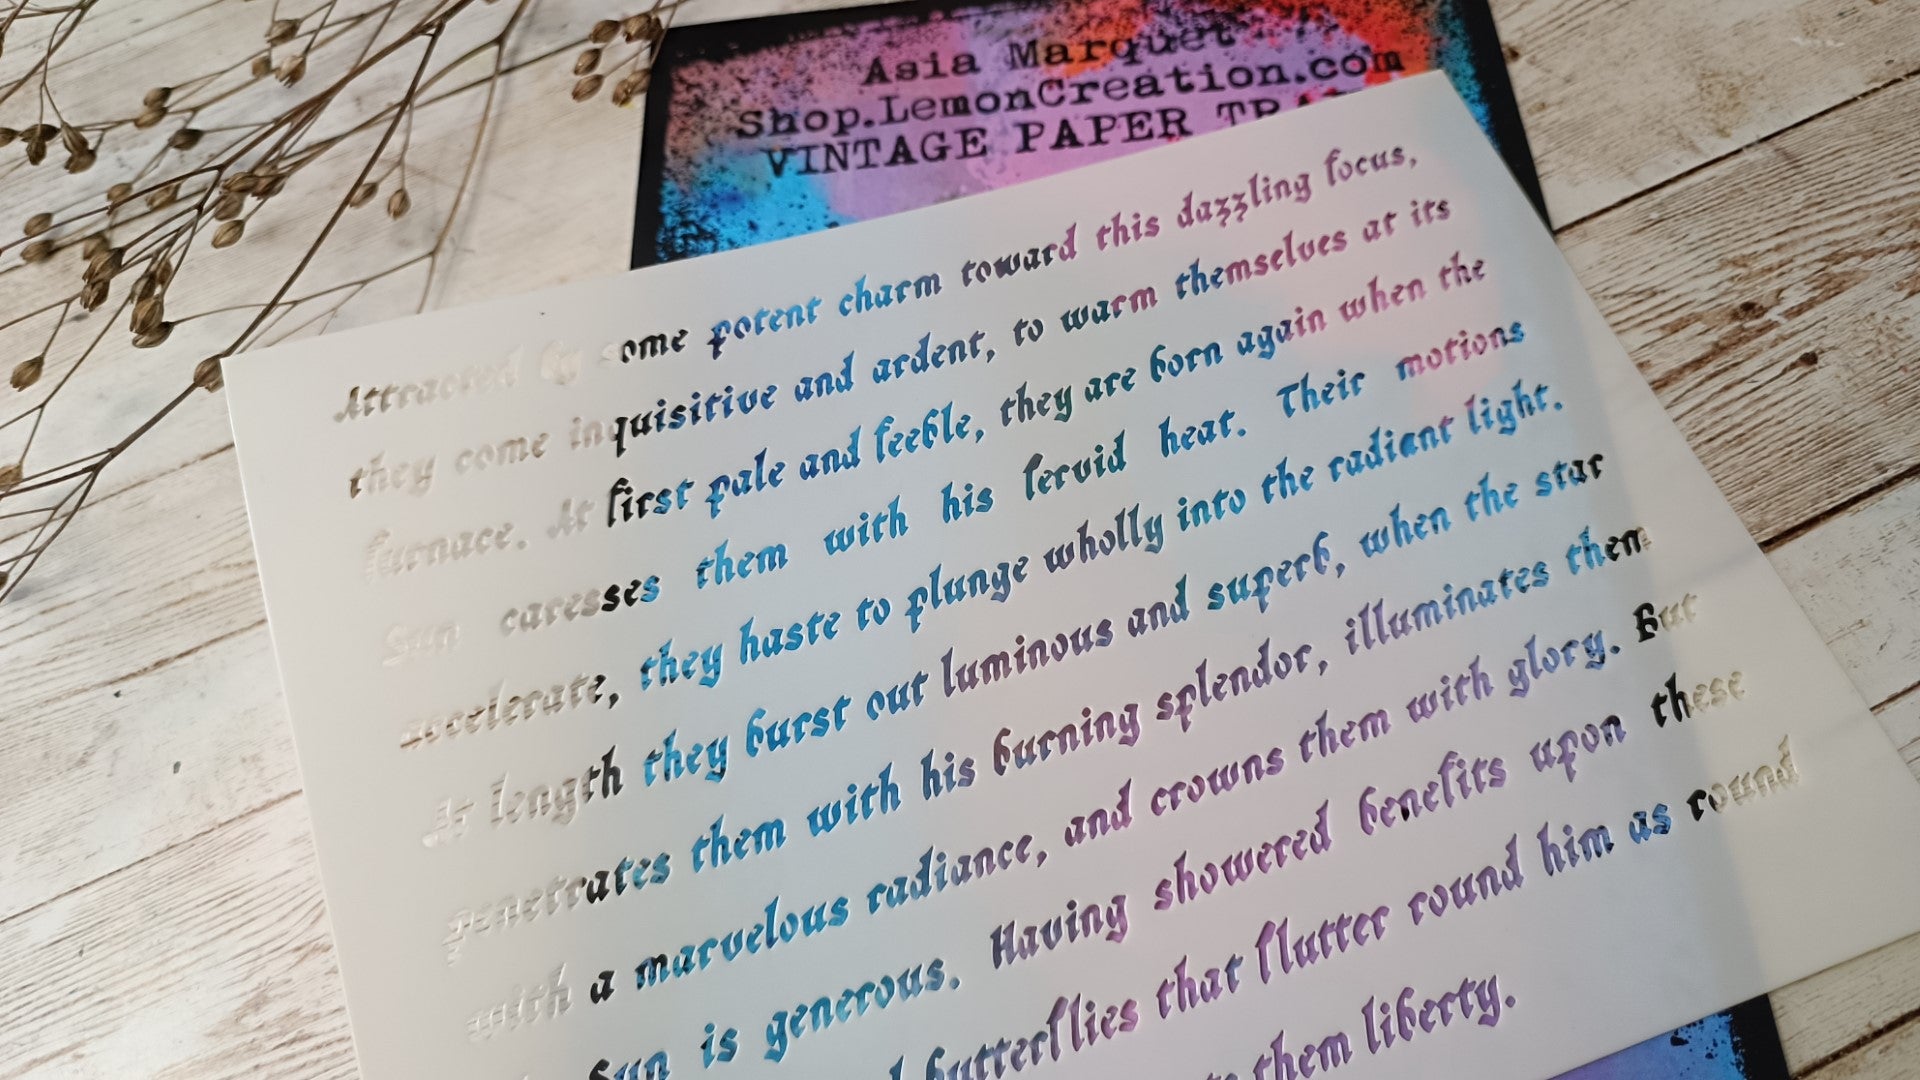 Asia Marquet
Shop.LemonCreation.com
VINTAGE PAPER
Attracted by some potent charm toward this dazzling focus,
they come inquisitive and ardent, to warm themselves at its
furnace. At first pale and feeble, they are born again when the
Sun caresses them with his fervid heat. Their motions
accelerate, they haste to plunge wholly into the radiant light.
At length they burst out luminous and superb, when the star
penetrates them with his burning splendor, illuminates them
with a marvelous radiance, and crowns them with glory. But
Sun is generous. Having showered benefits upon these
butterflies that flutter round him as round
them liberty.